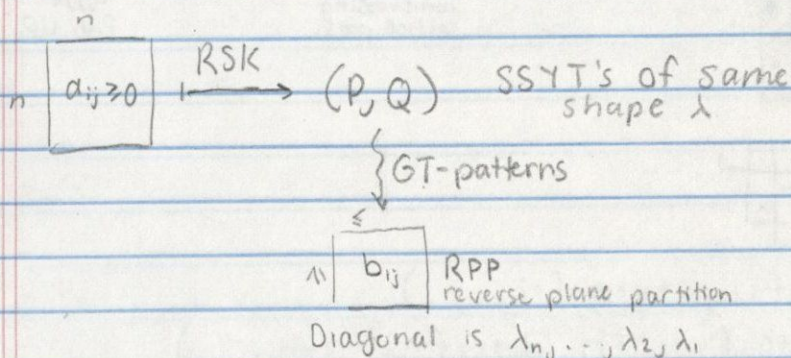 n
n a_ij ≥ 0 RSK (P, Q) SSYT's of same
shape λ
GT-patterns
≤
≤ b_ij RPP
reverse plane partition
Diagonal is λ_n, ..., λ_2, λ_1